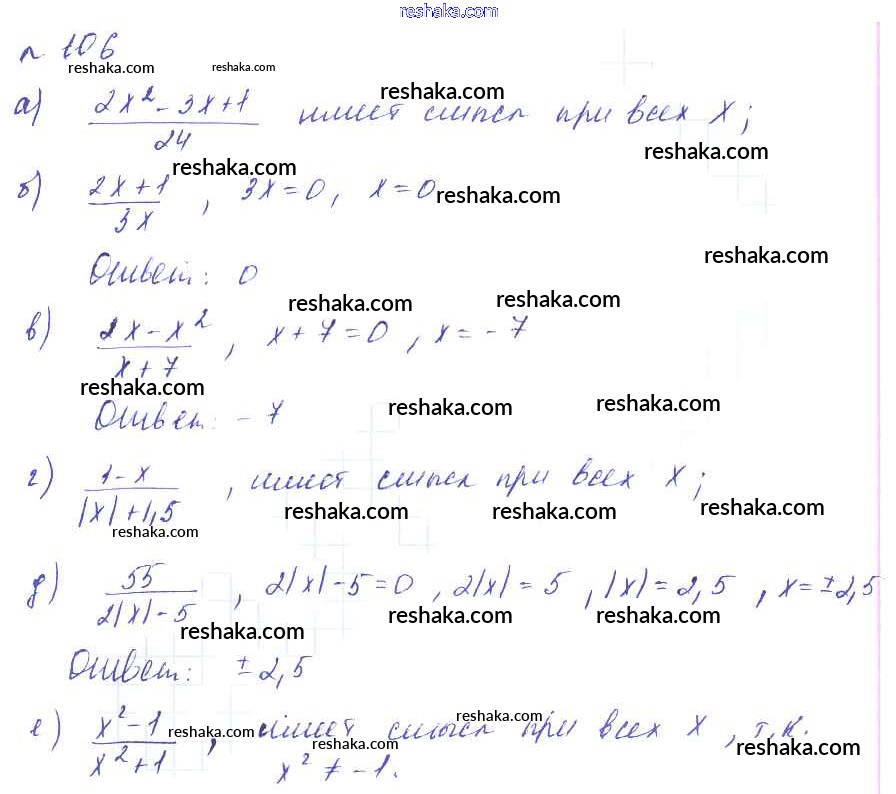 reshaka.com
№ 106
reshaka.com reshaka.com
а) (2x² - 3x + 1)/24 имеет смысл при всех x;
reshaka.com
reshaka.com
reshaka.com
б) (2x + 1)/(3x), 3x = 0, x = 0
reshaka.com
reshaka.com
Ответ: 0
reshaka.com reshaka.com
в) (2x - x²)/(x + 7), x + 7 = 0, x = -7
reshaka.com
reshaka.com reshaka.com
Ответ: -7
г) (1 - x)/(|x| + 1,5), имеет смысл при всех x;
reshaka.com reshaka.com reshaka.com
reshaka.com
д) 55/(2|x| - 5), 2|x| - 5 = 0, 2|x| = 5, |x| = 2,5, x = ±2,5
reshaka.com reshaka.com
reshaka.com
Ответ: ±2,5
reshaka.com
е) (x² - 1)/(x² + 1), имеет смысл при всех x, т.к.
reshaka.com reshaka.com reshaka.com
x² ≠ -1.